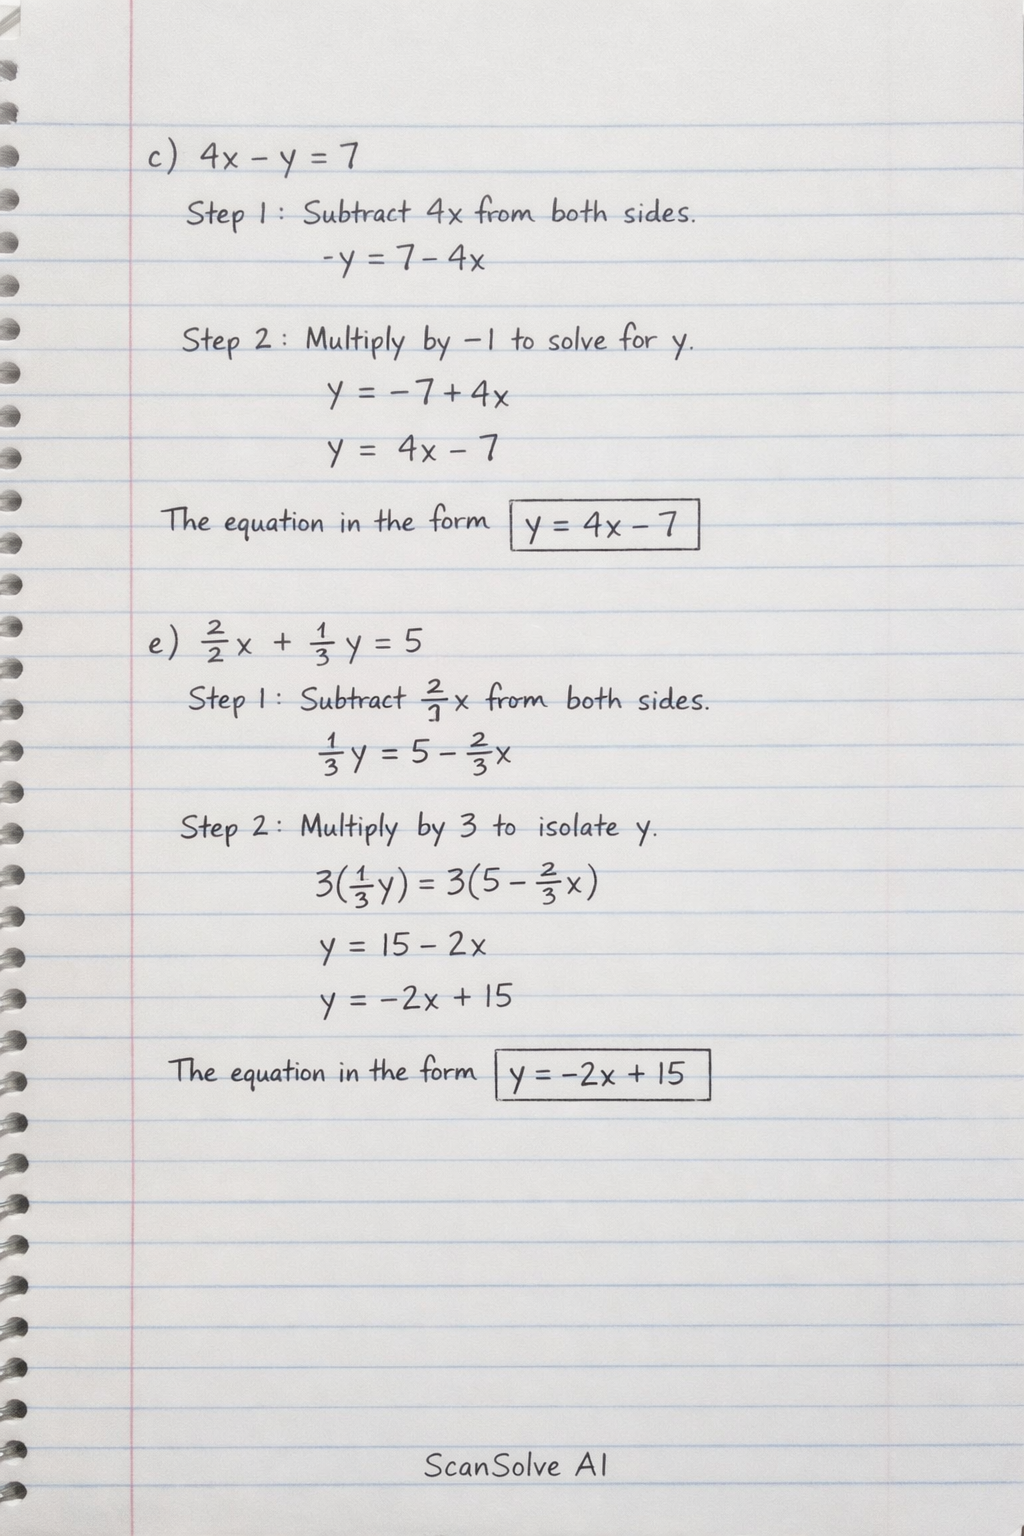 c) 4x − y = 7
Step 1: Subtract 4x from both sides.
-y = 7 − 4x
Step 2: Multiply by −1 to solve for y.
y = −7 + 4x
y = 4x − 7
The equation in the form y = 4x − 7
e) 2/2 x + 1/3 y = 5
Step 1: Subtract 2/3 x from both sides.
1/3 y = 5 − 2/3 x
Step 2: Multiply by 3 to isolate y.
3(1/3 y) = 3(5 − 2/3 x)
y = 15 − 2x
y = −2x + 15
The equation in the form y = −2x + 15
ScanSolve AI